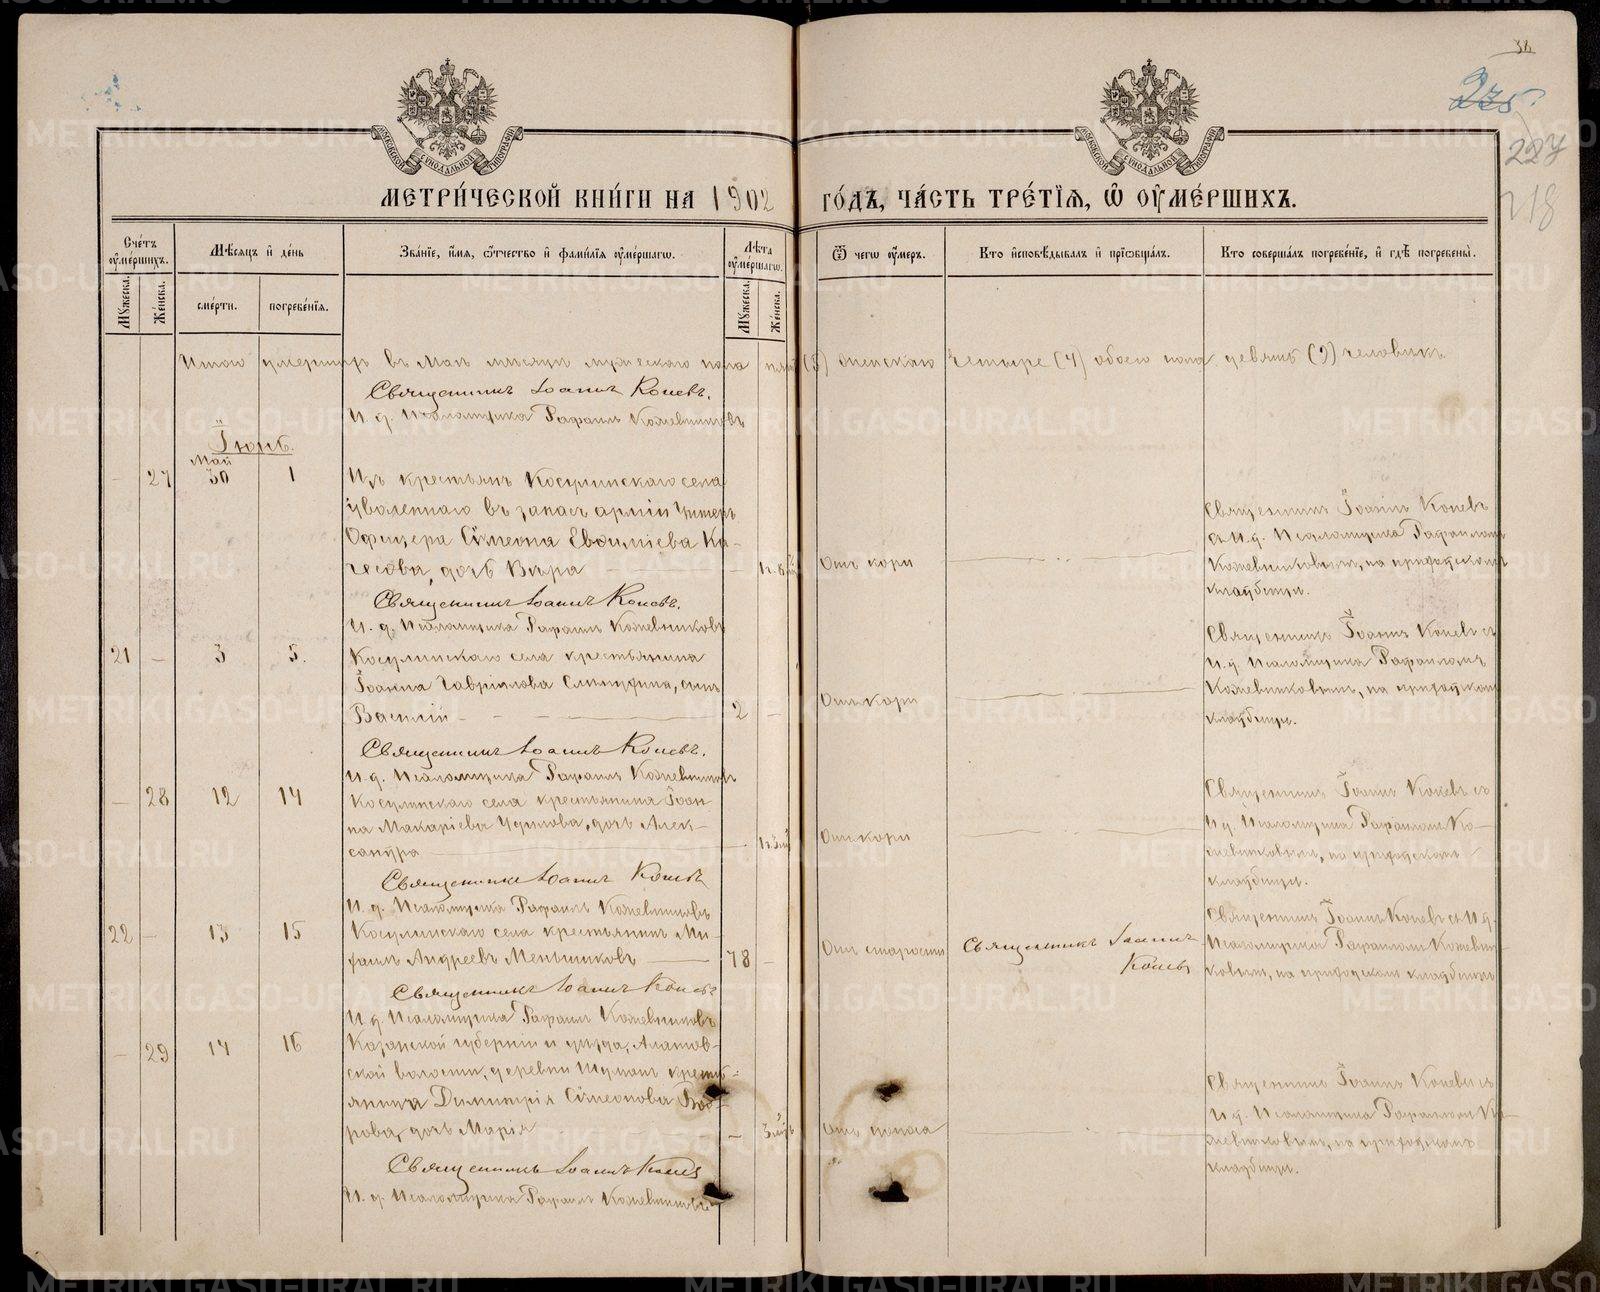 38
225
227
218
МЕТРИ́ЧЕСКОЙ КНИ́ГИ НА 1902 ГО́ДЪ, ЧА́СТЬ ТРЕ́ТІЯ, Ѡ ОУМЕ́РШИХЪ.
Сче́тъ оумершихъ.
Мѣсяцъ и де́нь
Зва́ніе, и́мя, ѻтчество и фами́лія оуме́ршагѡ.
Лѣта оуме́ршагѡ.
Ѿ чегѡ оумеръ.
Кто исповѣдывалъ и пріѡбщалъ.
Кто соверша́лъ погребе́ніе, и гдѣ погребены̀.
Мужеска.
Же́нска.
сме́рти.
погребе́нія.
Мужеска.
Же́нска.
Итого умершихъ въ Маѣ мѣсяцѣ мужескаго пола пять (5) женскаго четыре (4) обоего пола девять (9) человѣкъ
Священникъ Іоаннъ Коневъ.
И. д. Псаломщика Рафаилъ Кожевниковъ
Іюнь.
Май
27 30 1 Изъ крестьянъ Косулинскаго села
уволеннаго въ запасъ арміи Унтеръ
Офицера Сѵмеона Евфиміева Ка-
чесова, дочь Вѣра
Отъ кори
Священникъ Іоаннъ Коневъ
съ И. д. Псаломщика Рафаиломъ
Кожевниковымъ, на приходскомъ
кладбищѣ.
Священникъ Іоаннъ Коневъ.
И. д. Псаломщика Рафаилъ Кожевниковъ
21 3 5. Косулинскаго села крестьянина
Іоанна Гавріилова, сынъ
Василій 2
Отъ кори
Священникъ Іоаннъ Коневъ съ
И. д. Псаломщика Рафаиломъ
Кожевниковымъ, на приходскомъ
кладбищѣ.
Священникъ Іоаннъ Коневъ.
И. д. Псаломщика Рафаилъ Кожевниковъ
28 12 14 Косулинскаго села крестьянина Іоан
на Макаріева, дочь Алек-
сандра
Отъ кори
Священникъ Іоаннъ Коневъ съ
И. д. Псаломщика Рафаиломъ Ко-
жевниковымъ, на приходскомъ
кладбищѣ.
Священникъ Іоаннъ Коневъ
И. д. Псаломщика Рафаилъ Кожевниковъ
22 13 15 Косулинскаго села крестьянинъ Ми-
хаилъ Андреевъ Меньшиковъ 78
Отъ старости
Священникъ Іоаннъ
Коневъ
Священникъ Іоаннъ Коневъ съ И. д.
Псаломщика Рафаиломъ Кожевни-
ковымъ, на приходскомъ кладбищѣ
Священникъ Іоаннъ Коневъ
И. д. Псаломщика Рафаилъ Кожевниковъ
29 14 16 Казанской губерніи и уѣзда, Алатов-
ской волости, деревни кресть-
янина Димитрія Сѵмеонова
дочь Марія
Отъ поноса
Священникъ Іоаннъ Коневъ съ
И. д. Псаломщика Рафаиломъ Ко-
жевниковымъ, на приходскомъ
кладбищѣ.
Священникъ Іоаннъ Коневъ
И. д. Псаломщика Рафаилъ Кожевниковъ
METRIKI.GASO-URAL.RU